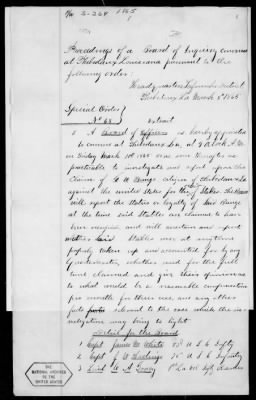 1865
Proceedings of a Board of Inquiry convened
at Thibodaux Louisiana pursuant to the
following order:
Head quarters Lafourche District
Thibodaux La March 8" 1865
Special Orders
No 48 Extract
A Board of Officers is hereby appointed
to convene at Thibodaux La. at 9 o'clock A.M.
on Friday March 10th 1865 or as soon thereafter as
practicable to investigate and report upon the
claim of citizen of Thibodaux La
against the united States for the of Stables. The Board
will report the Status or loyalty of Said
at the time said Stables are claimed to have
been occupied, and will ascertain and report
whether Said Stables were at any time
properly taken up and accounted for by any
Quartermaster, whether rent for the full
time claimed and give their opinion as
to what would be a reasonable compensation
per month for their use, and any other
facts relevant to the case which the in-
vestigation may bring to light
Detail for the Board
1 Capt James White U S C Infty
2 Capt U S C Infantry
3 Lieut 1st La Vol Infty
THE
NATIONAL ARCHIVES
OF THE
UNITED STATES